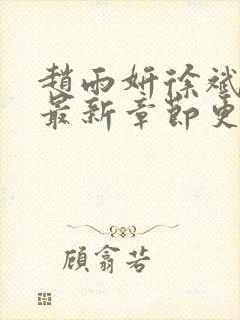 趙雨妍徐斌
最新章節更
顧翕若